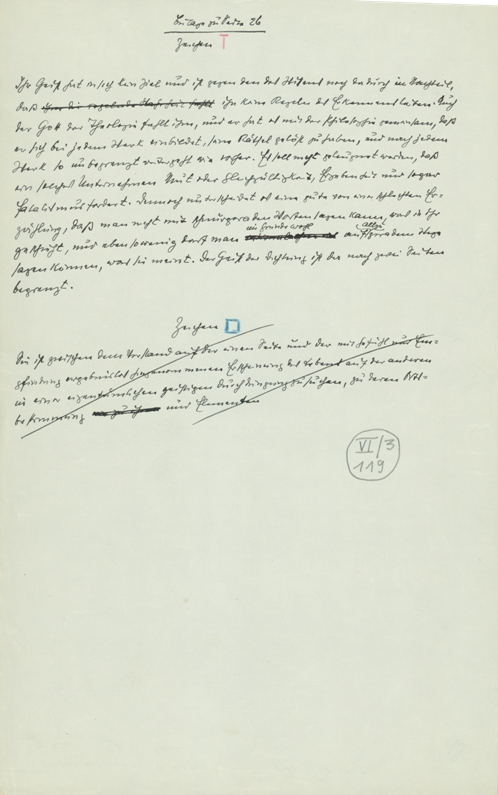 Beilage zu Seite 26
Zeichen T
Ihr Geist hat in sich kein Ziel und ist gegen den des Wissens noch dadurch im Nachteil,
daß ihr keine Regeln des Erkennens leiten. Auch
der Gott der Theologie fehlt ihm, und er hat es mit der Philosophie gemeinsam, daß
er sich bei jedem Werk einbildet, seine Rätsel gelöst zu haben, und nach jedem
Werk so unbegrenzt weitergeht wie vorher. Es soll nicht geleugnet werden, daß
ein solches Unternehmen Mut oder Gleichgültigkeit, Ergebenheit und sogar
Fatalismus fordert. Dennoch unterscheidet es eine gute von einer schlechten Er-
zählung, daß man nicht mit schnurgeraden Worten sagen kann, was in ihr
geschieht, und ebensowenig darf man im Grunde wohl auf allzu geradem Wege
sagen können, was sie meint. Der Geist der Dichtung ist der nach zwei Seiten
begrenzt.
Zeichen □
Sie ist zwischen dem Verstand auf der einen Seite und der mit Gefühl und Em-
pfindung Erscheinung des Lebens auf der anderen
in einer eigentümlichen geistigen Durchdringung zu suchen, zu deren
und Elementen
VI/3
119